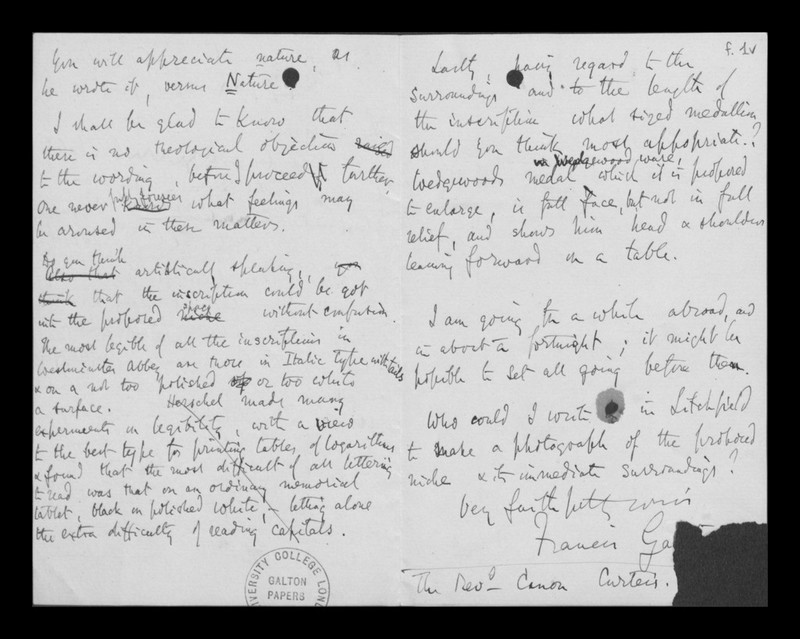 You will appreciate nature, as
he wrote it, versus Nature.
I shall be glad to know that
there is no theological objection raised
to the wording, before I proceed further,
One never knows what feelings may
be aroused in these matters.
Do you think
Also that artistically speaking, you
think that the inscription could be got
into the proposed niche without confusion.
The most legible of all the inscriptions in
Westminster Abbey are those in Italic type with tails
& on a not too polished or too white
a surface. Herschel made many
experiments on legibility, with a view
to the best type for printing tables of logarithms
& found that the most difficult of all lettering
to read was that on an ordinary memorial
tablet, black on polished white, – letting alone
the extra difficulty of reading capitals.
UNIVERSITY COLLEGE LOND
GALTON
PAPERS
f. 1v
Lastly, having regard to the
surroundings and to the length of
the inscription what sized medallion
should you think most appropriate?
in Wedgewood ware,
Wedgewoods medal which it is proposed
to enlarge, is full face, but not in full
relief, and shows him head & shoulders
leaning forward on a table.
I am going for a while abroad, and
in about a fortnight; it might be
possible to set all going before then.
Who could I write in Litchfield
to make a photograph of the proposed
niche & its immediate surroundings?
Very faithfully yours
Francis Ga
The Revd Canon Curteis.